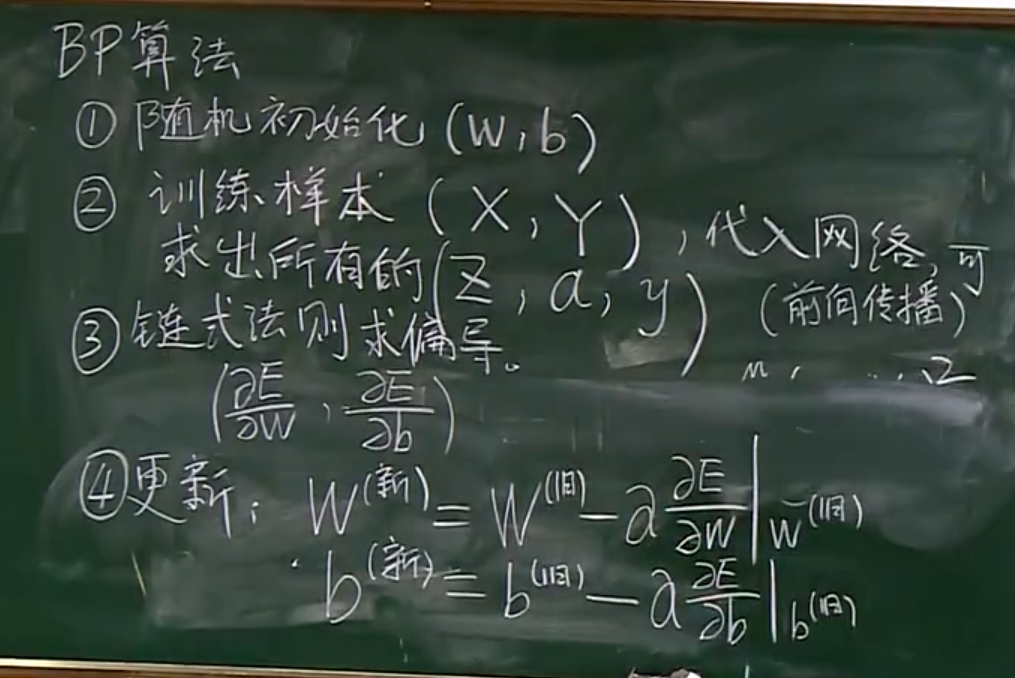 BP算法
① 随机初始化 (W, b)
② 训练样本 (X, Y), 代入网络, 可
求出所有的 (Z, a, y) (前向传播)
③ 链式法则求偏导。
(∂E/∂W, ∂E/∂b)
④ 更新: W^(新) = W^(旧) - α ∂E/∂W |_W^(旧)
b^(新) = b^(旧) - α ∂E/∂b |_b^(旧)